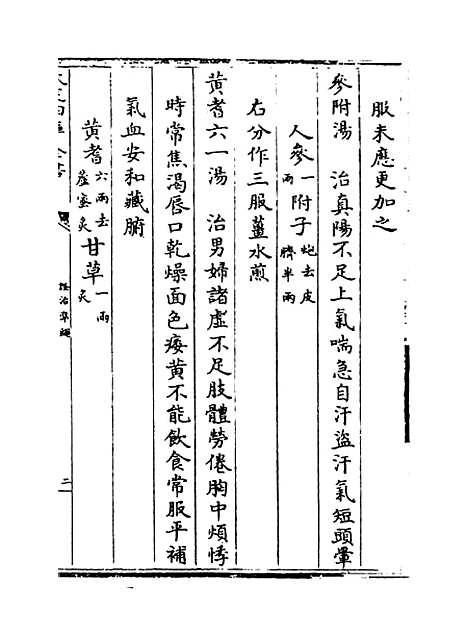 服未應更加之
參附湯　治真陽不足上氣喘急自汗盜汗氣短頭暈
人參一兩附子炮去皮臍半兩
右分作三服薑水煎
黃耆六一湯　治男婦諸虛不足肢體勞倦胸中煩悸
時常焦渴唇口乾燥面色痿黃不能飲食常服平補
氣血安和藏腑
黃耆六兩去蘆蜜炙甘草一兩炙
證治準繩
二